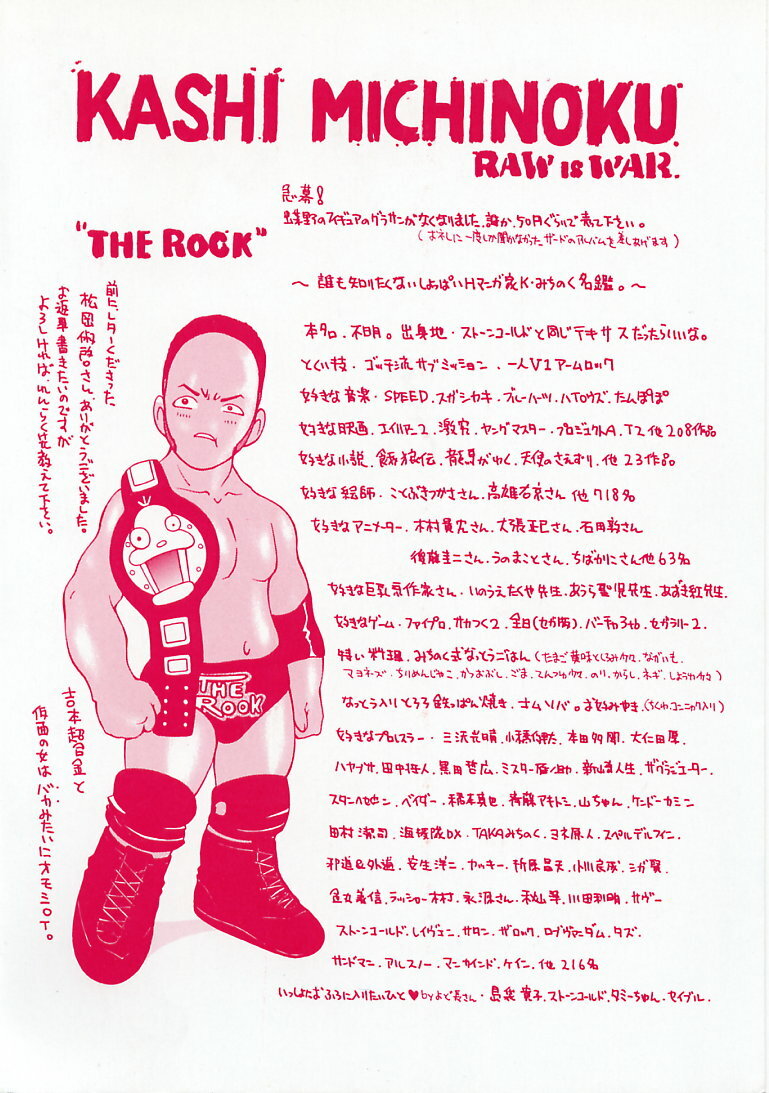 KASHI MICHINOKU
RAW IS WAR.
"THE ROCK"
急募!
のフィギュアのグラサンがなくなりました。誰か、50円ぐらいで売て下さい。
(お礼に一度しか聞かなかったザードのアルバムを差しあげます)
〜誰も知りたくないしょっぱいHマンガ家K・みちのく名鑑。〜
前にレターくださった
松岡さん、ありがとうございました。
お返事書きたいのですが
よろしければ、れんらく先教えて下さい。
本名.不明。出身地・ストーンコールドと同じテキサスだったらいいな。
とくい技・ゴッチ流サブミッション.一人V1アームロック
好きな音楽・SPEED.スガシカオ.ブルーハーツ.ハイロウズ.たんぽぽ
好きな映画.エイリアン2.激突.ヤングマスター.プロジェクトA.T2他208作品
好きな小説.餓狼伝.龍馬がゆく.天使のさえずり.他23作品
好きな絵師・ことぶきつかささん.高雄右京さん他718名
好きなアニメーター.木村貴宏さん.大張正己さん.石田敦さん
後藤圭二さん.うのまことさん.ちばかにこさん他63名
好きな巨乳系作家さん・いのうえたくや先生.あうら聖児先生.あずき紅先生.
好きなゲーム・ファイプロ.サカつく2.全日(セガ版).バーチャ3.セガラリー2.
得い料理.みちのく式なっとうごはん(たまご黄味とくるみ.ながいも.
マヨネーズ.ちりめんじゃこ.かつおぶし.ごま.てんつゆ.のり.からし.ネギ.しょうゆ)
なっとう入りとろろ鉄っぱん焼き.サムソバ。お好みやき(ちくわ.コンニャク入り)
好きなプロレスラー・三沢光晴.小橋健太.本田多聞.大仁田厚.
ハヤブサ.田中将人.黒田哲広.ミスター雁之助.新山勝利.ザグラジエーター.
スタンハンセン.ベイダー.橋本真也.斉藤アキトシ.山ちゃん.ケンドーカシン
田村潔司.海坂院DX.TAKAみちのく.ヨネ原人.スペルデルフィン.
邪道&外道.安生洋二.ヤッキー.折原昌夫.小川良成.シガ賢.
金丸義信.ラッシャー木村.永源さん.秋山準.川田利明.サヴー
ストーンコールド.レイヴェン.サタン.ザロック.ロブヴァンダム.タズ.
サンドマン.アルスノー.マンカインド.ケイン.他216名
いっしょにおふろに入りたいひと♥byよど長さん・島袋寛子.ストーンコールド.タミーちゃん.セイブル.
吉本超合金と
仮面の女はバカみたいにオモシロイ。
THE ROOK